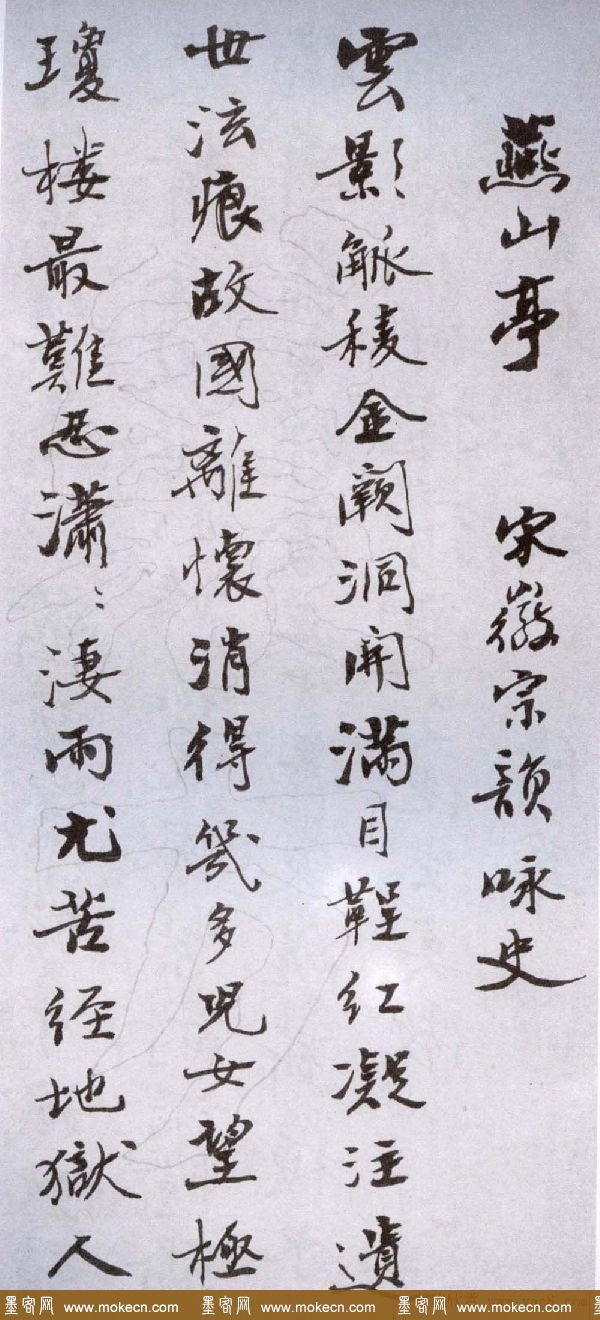 燕山亭 宋徽宗韻咏史
雲影觚稜金闕洞開滿目鞓紅凝注遺
世泫痕故國離懷消得幾多兒女望極
瓊楼最難忍瀟〻淒雨尤苦經地獄人
墨客网 www.mokecn.com 墨客网 www.mokecn.com 墨客网 www.mokecn.com